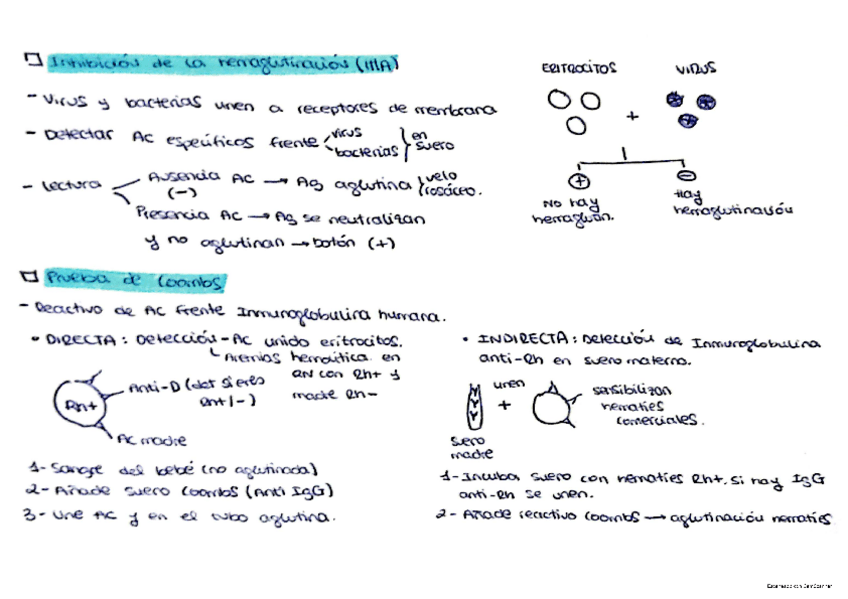 Inhibición de la hemaglutinación (IHA)
- Virus y bacterias unen a receptores de membrana
- Detectar AC específicos frente virus bacterias } en suero
- Lectura
Ausencia AC → Ag aglutina } velo rosáceo.
(-)
Presencia AC → Ag se neutralizan
y no aglutinan → botón (+)
ERITROCITOS
VIRUS
+
+
-
No hay
hemaglutin.
Hay
hemaglutinación
Prueba de Coombs
- Reactivo de AC frente Inmunoglobulina humana.
• DIRECTA: Detección - AC unido eritrocitos.
Anemias hemolítica en
RN con Rh+ y
madre Rh-
Rh+
Anti-D (det si eres
Rh+/-)
AC madre
1- Sangre del bebé (no aglutinada)
2- Añade suero Coombs (Anti IgG)
3- Une AC y en el tubo aglutina.
• INDIRECTA: Detección de Inmunoglobulina
anti-Rh en suero materno.
unen
+
suero
madre
sensibilizan
hematíes
comerciales.
1- Incuba suero con hematíes Rh+. Si hay IgG
anti-Rh se unen.
2- Añade reactivo Coombs → aglutinación hematíes
Escaneado con CamScanner